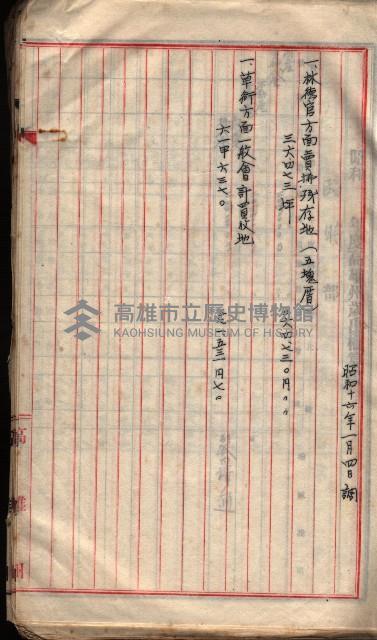 昭和十六年一月四日調
一、林德官方面賣拂殘存地(五塊厝)
三六四七三坪
六四七三〇円〇〇
一、草衙方面一般會計買收地
六一甲六三七〇
一五三円七〇
高雄州
高雄市立歷史博物館
KAOHSIUNG MUSEUM OF HISTORY